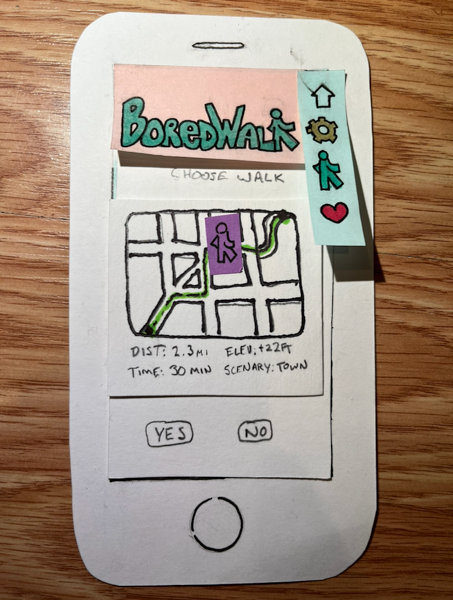 BOREDWALK
CHOOSE WALK
DIST: 2.3 MI ELEV: +22FT
TIME: 30 MIN SCENARY: TOWN
YES NO